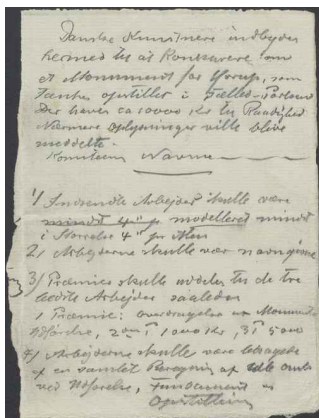 Danske Kunstnere indbydes
hermed til at Konkurrere om
et Monument for Hørup, som
tænkes opstillet i Fælled-Parken
Der haves ca 10000 Kr til Raadighed
Nærmere Oplysninger ville blive
meddelte.
Komiteen Navne
1) Indsendte Arbejder skulle være
mindst modelleret mindst
i Størrelse 4" pr Alen
2) Arbejderne skulle være navngivne
3) Præmier skulle uddeles til de tre
bedste Arbejder saaledes
1 Præmie: Overdragelse en Monumentets
Udførelse, 2den 1000 Kr, 3die 500
4) Arbejderne skulle være ledsagede
af en samlet Beregning af
ved Udførelse, Fundament og
Opstilling